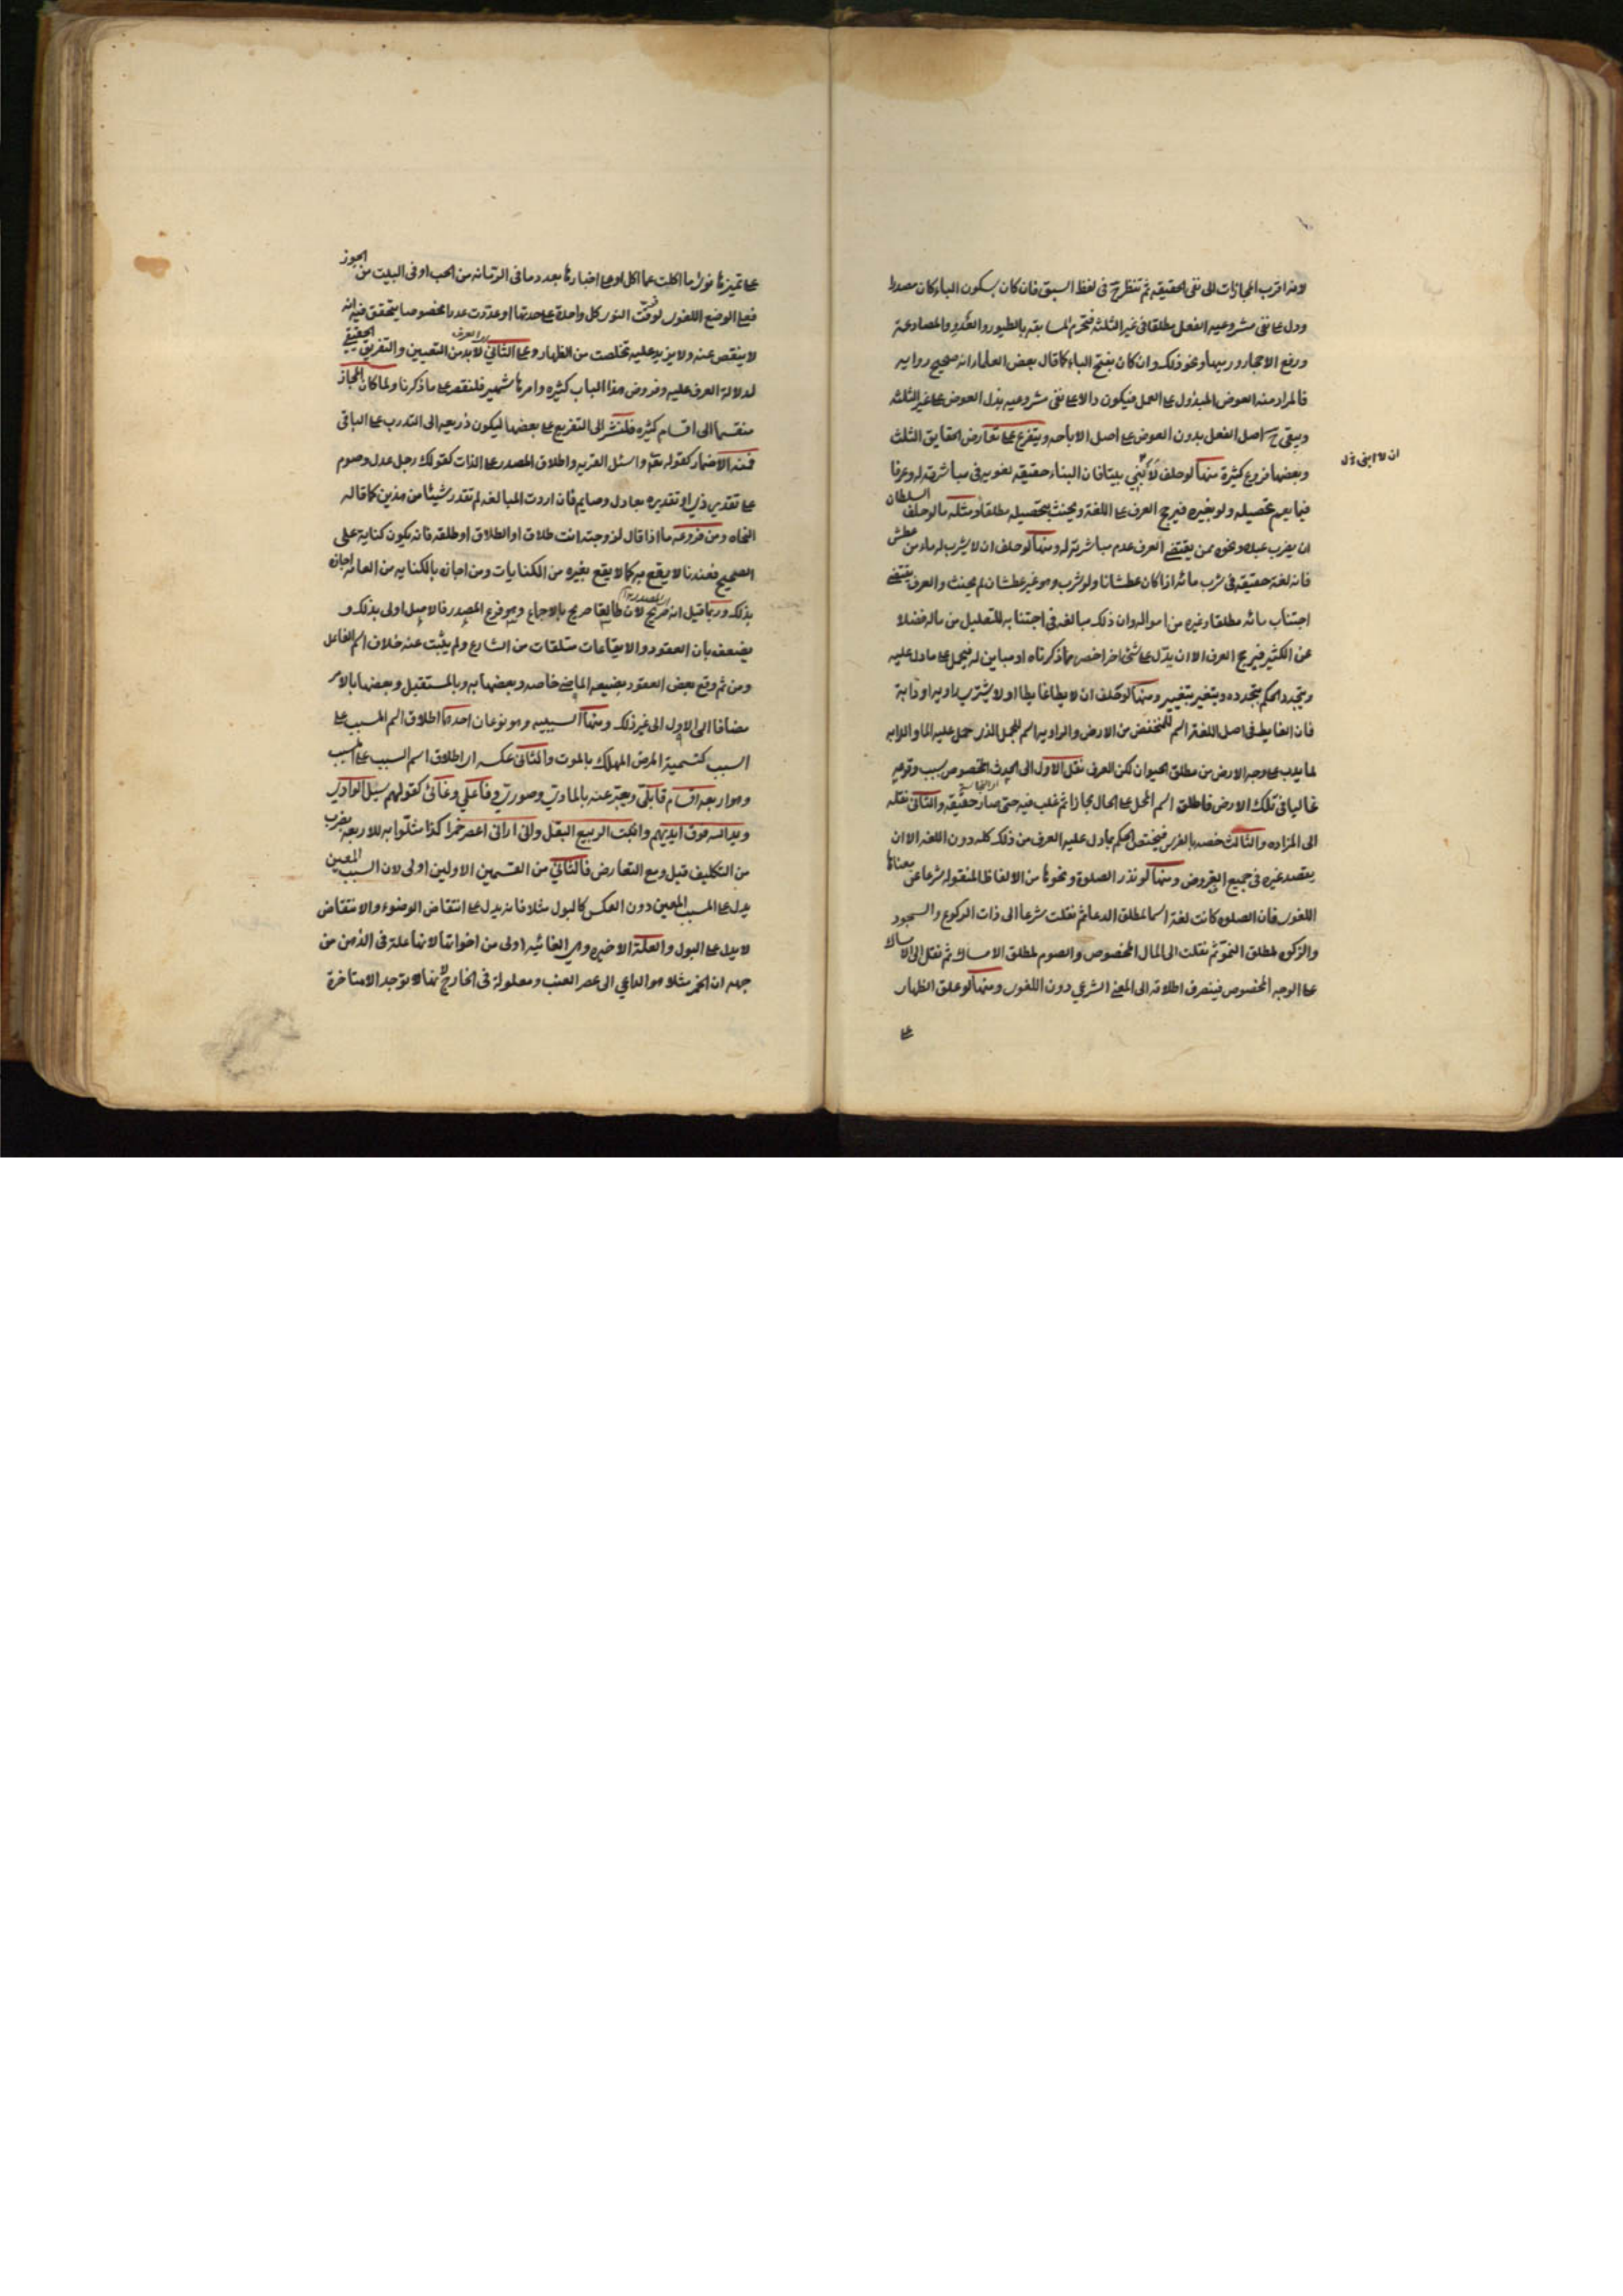 لانه اقرب المجازات الى نفى الحقيقه ثم تنظر ح فى لفظ السبق فان كان بسكون الباء كان مصدرا
ودل على نفى مشروعيه الفعل مطلقا فى غير الثلثه فتحرم المسابقه بالطيور والعدو والمصارعة
ورفع الاحجار ورميها ونحو ذلك وان كان بفتح الباء كما قال بعض العلماء انه صحيح روايه
فالمراد منه العوض المبذول على العمل فيكون دالا على نفى مشروعيه بذل العوض على غير الثلثه
ويبقى ح اصل الفعل بدون العوض على اصل الاباحه ويتفرع على تعارض الحقايق الثلث
وبعضها فروع كثيرة منها لو حلف لا يبنى بيتا فان البناء حقيقه لغويه فى مباشرته له وعرفا
ان لا ابنى
فيما يعم تحصيله ولو بغيره فيرجح العرف على اللغة ويحنث بتحصيله مطلقا ومثله ما لو حلف السلطان
ان يضرب عبده ونحوه ممن يقتضى العرف عدم مباشرته له ومنها لو حلف ان لا يشرب له ماء من عطش
فانه لغة حقيقه فى شرب مائه اذا كان عطشانا ولو شرب وهو غير عطشان لم يحنث والعرف يقتضى
اجتناب مائه مطلقا وغيره من امواله وان ذلك مبالغه فى اجتنابه للتقليل من ماله فضلا
عن الكثير فيرجح العرف الا ان يدل على شئ اخر اخص مما ذكرناه او مباين له فيحمل على ما دل عليه
ويتجدد الحكم بتجدده ويتغير بتغييره ومنها لو حلف ان لا يطا غايطا او لا يشترى راويه او دابة
فان الغايط فى اصل اللغة اسم للمنخفض من الارض والراويه اسم للجمل الذى حمل عليه الماء والدابه
لما يدب على وجه الارض من مطلق الحيوان لكن العرف نقل الاول الى الحدث المخصوص بسبب وقوعه
غالبا فى تلك الارض فاطلق اسم المحل على الحال مجازا ثم غلب فيه حتى صار حقيقه والثانى نقله
الى المزاده والثالث خصه بالفرس فيختص الحكم بما دل عليه العرف من ذلك كله دون اللغه الا ان
يقصد غيره فى جميع الفروض ومنها لو نذر الصلوة ونحوها من الالفاظ المنقوله شرعا عن معناها
اللغوى فان الصلوه كانت لغة اسما لمطلق الدعا ثم نقلت شرعا الى ذات الركوع والسجود
والزكوه لمطلق النمو ثم نقلت الى المال المخصوص والصوم لمطلق الامساك ثم نقل الى الامساك
على الوجه المخصوص فينصرف اطلاقه الى المعنى الشرعي دون اللغوى ومنها لو علق الظهار
على
على تميزها نوى ما اكلت عما اكل او على اخبارها بعدد ما فى الرمانه من الحب او فى البيت من الجوز
فعلى الوضع اللغوى لو فرقت النوى كل واحدة على حدتها او عددت عددا مخصوصا يتحقق فيه انه
لا ينقص عنه ولا يزيد عليه تخلصت من الظهار وعلى الثانى لا بد من التعيين والتفريق الحقيقى
لدلالة العرف عليه وفروض هذا الباب كثيره وامرها شهير فلنقصر على ما ذكرنا ولما كان المجاز
منقسما الى اقسام كثيره فلنشر الى التفريع على بعضها ليكون ذريعه الى التدرب على الباقى
فمنه الاضمار كقوله تعالى واسئل القريه واطلاق المصدر على الذات كقولك رجل عدل وصوم
على تقدير ذى او تقديره بعادل وصايم فان اردت المبالغه لم تقدر شيئا من هذين كما قاله
النحاه ومن فروعه ما اذا قال لزوجته انت طلاق او الطلاق او طلقه فانه يكون كناية على
الصحيح فعندنا لا يقع به كما لا يقع بغيره من الكنايات ومن اجازه بالكنايه من العامه اجازه
بذلك وربما قيل انه صريح لان طالقا صريح بالاجماع وهو فرع المصدر فالاصل اولى بذلك و
يضعف بان العقود والايقاعات متلقات من الشارع ولم يثبت عنه خلاف اسم الفاعل
ومن ثم وقع بعض العقود بصيغه الماضى خاصه وبعضها به وبالمستقبل وبعضها بالامر
مضافا الى الاول الى غير ذلك ومنها السببيه وهو نوعان احدهما اطلاق اسم المسبب على
السبب كتسمية المرض المهلك بالموت والثانى عكسه اى اطلاق اسم السبب على المسبب
وهو اربعه اقسام قابلى ويعبر عنه بالمادى وصورى وفاعلى وغائى كقولهم سيل الوادى
ويد الله فوق ايديهم وانبت الربيع البقل وانى ارانى اعصر خمرا كذا مثلوا به للاربعه بضرب
من التكليف قيل ومع التعارض فالثانى من القسمين الاولين اولى لان السبب المعين
يدل على المسبب المعين دون العكس كالبول مثلا فانه يدل على انتقاض الوضوء والانتقاض
لا يدل على البول والعلة الاخيره وهى الغائيه اولى من اخواتها لانها علة فى الذهن من
جهه ان الخمر مثلا هو الداعي الى عصر العنب ومعلولة فى الخارج لانها لا توجد الا متاخرة